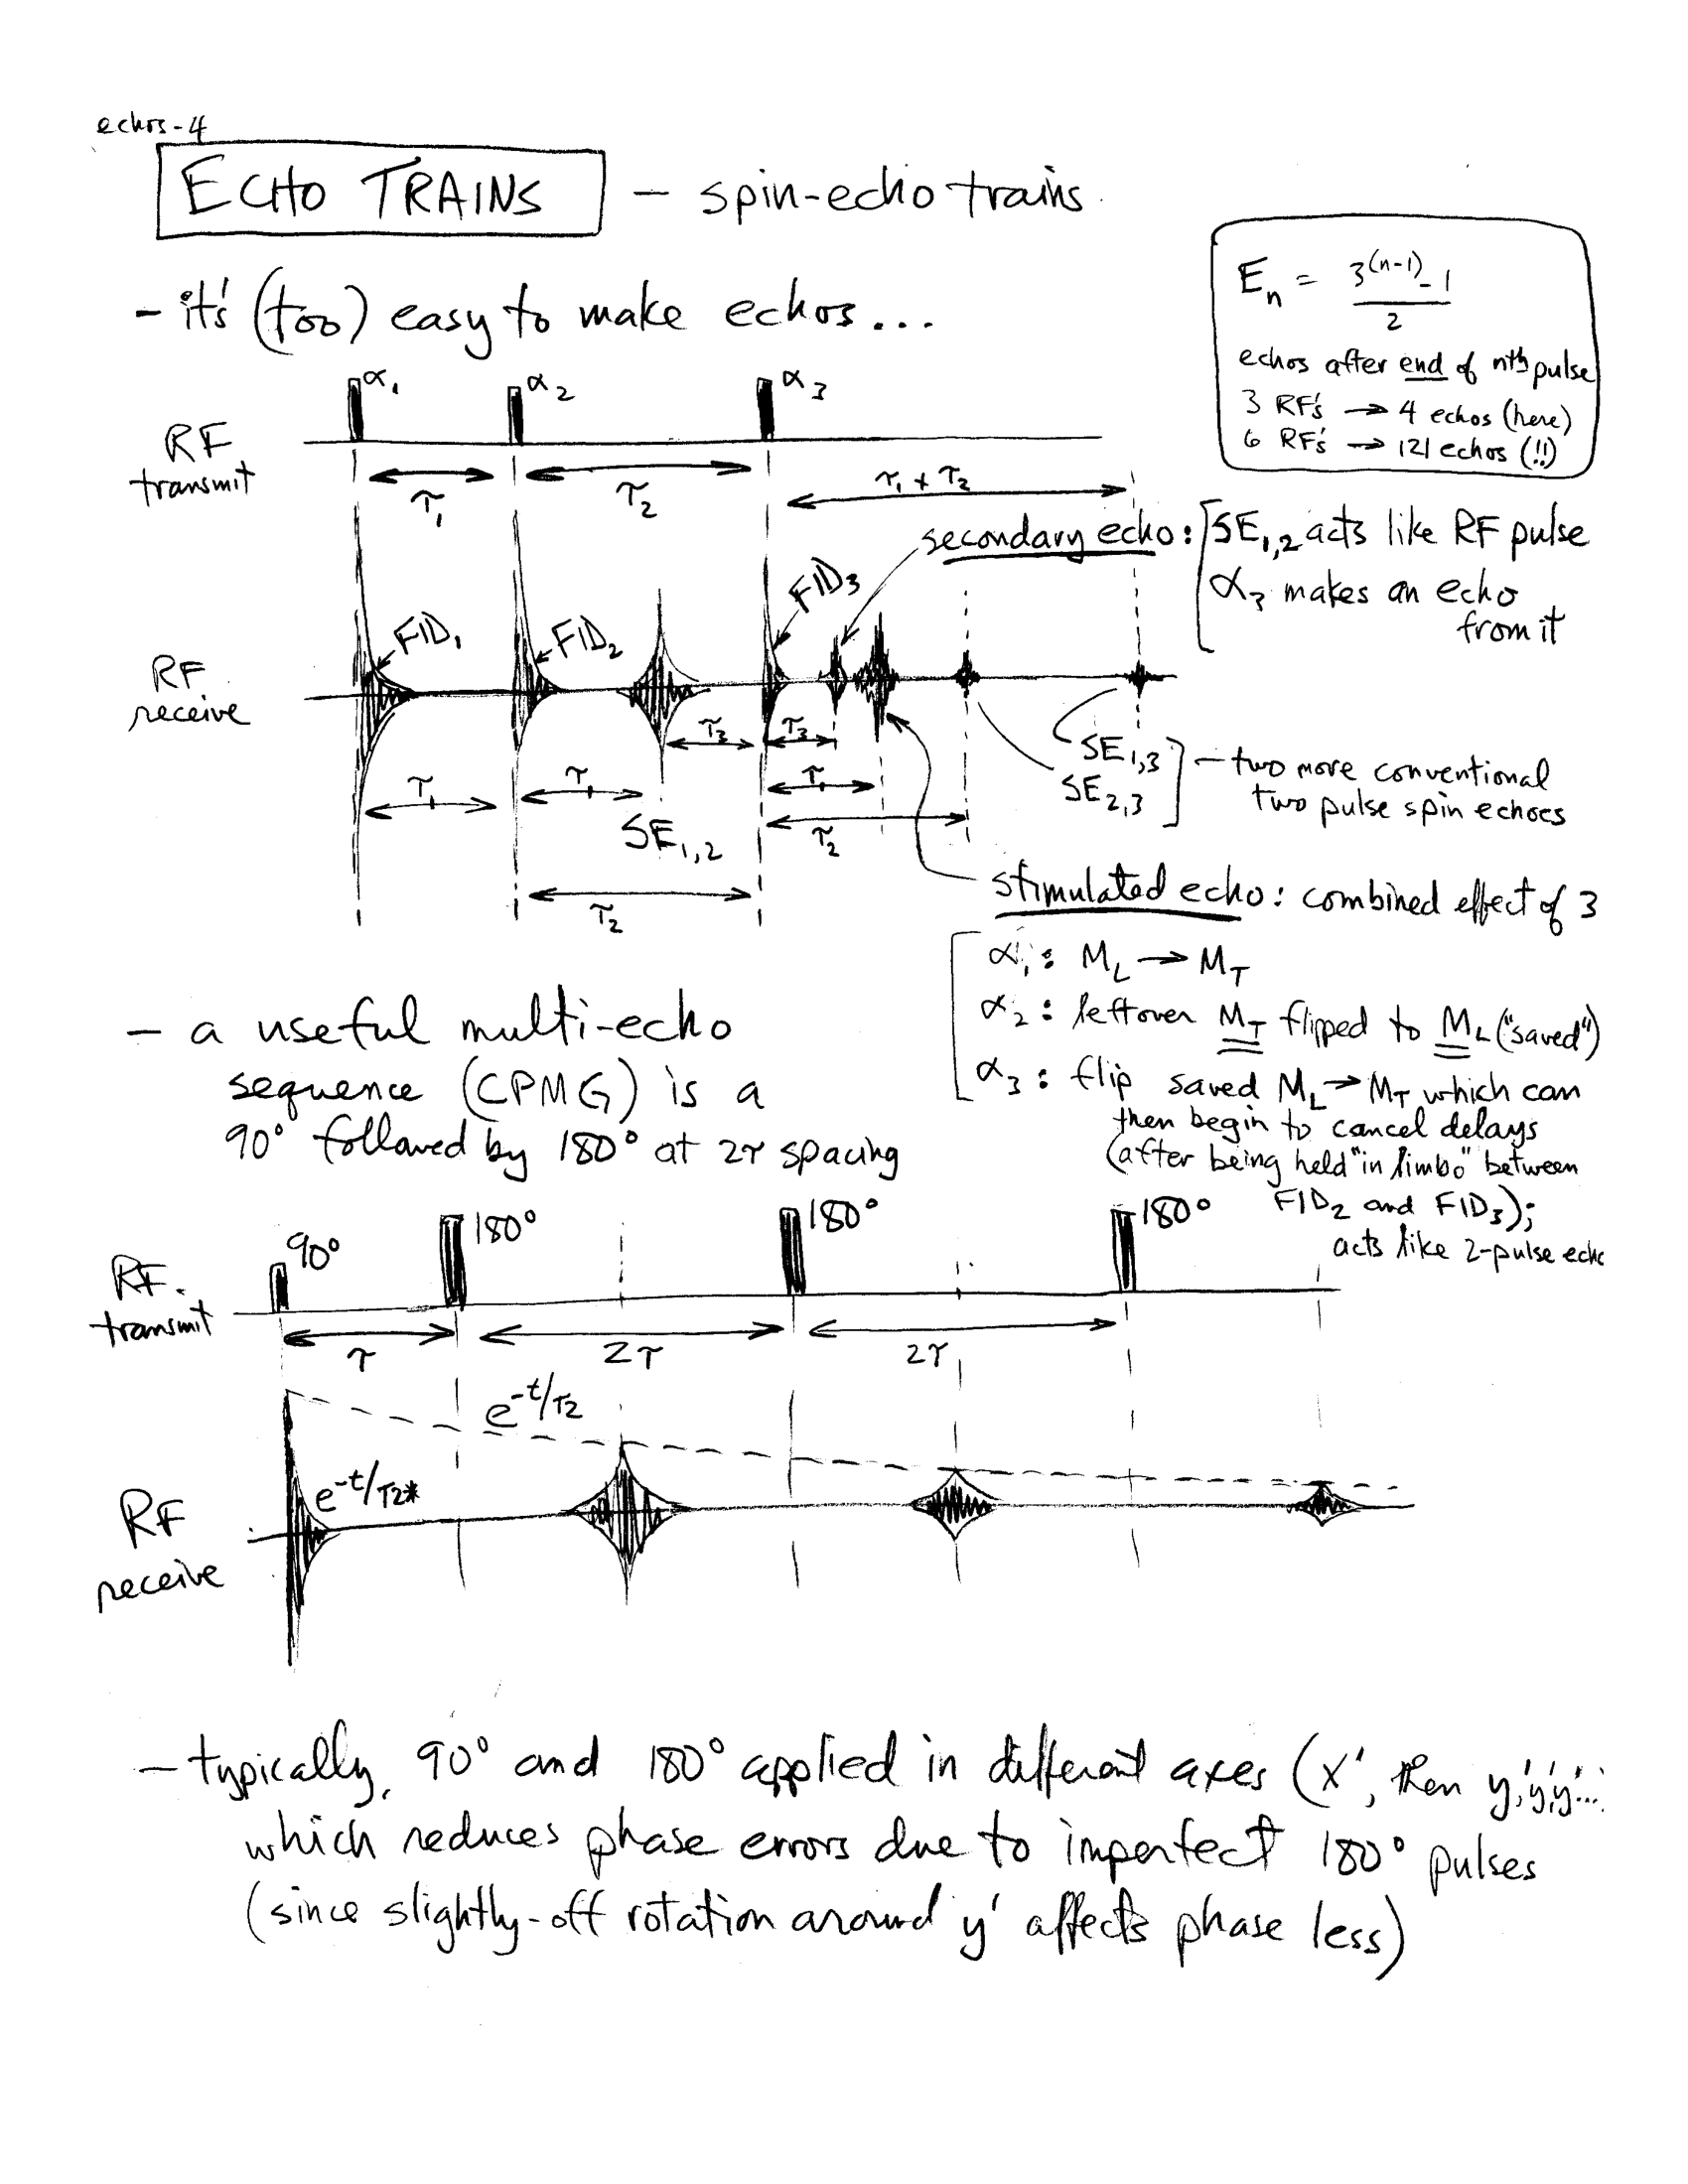 echos-4
ECHO TRAINS – spin-echo trains
- it's (too) easy to make echos...
E_n = (3^(n-1) - 1) / 2
echos after end of nth pulse
3 RF's → 4 echos (here)
6 RF's → 121 echos (!!)
α1 α2 α3
RF transmit
τ1 τ2 τ1 + τ2
secondary echo: SE1,2 acts like RF pulse
α3 makes an echo
from it
FID1 FID2 FID3
RF receive
τ3 τ3
τ1 τ1 τ1
SE1,2
τ2
τ2
SE1,3
SE2,3
– two more conventional
two pulse spin echoes
stimulated echo: combined effect of 3
α1: ML → MT
α2: leftover MT flipped to ML ("saved")
α3: flip saved ML → MT which can
then begin to cancel delays
(after being held "in limbo" between
FID2 and FID3);
acts like 2-pulse echo
– a useful multi-echo
sequence (CPMG) is a
90° followed by 180° at 2τ spacing
90° 180° 180° 180°
RF transmit
τ 2τ 2τ
e^-t/T2
e^-t/T2*
RF receive
– typically, 90° and 180° applied in different axes (x', then y',y',y'...
which reduces phase errors due to imperfect 180° pulses
(since slightly-off rotation around y' affects phase less)